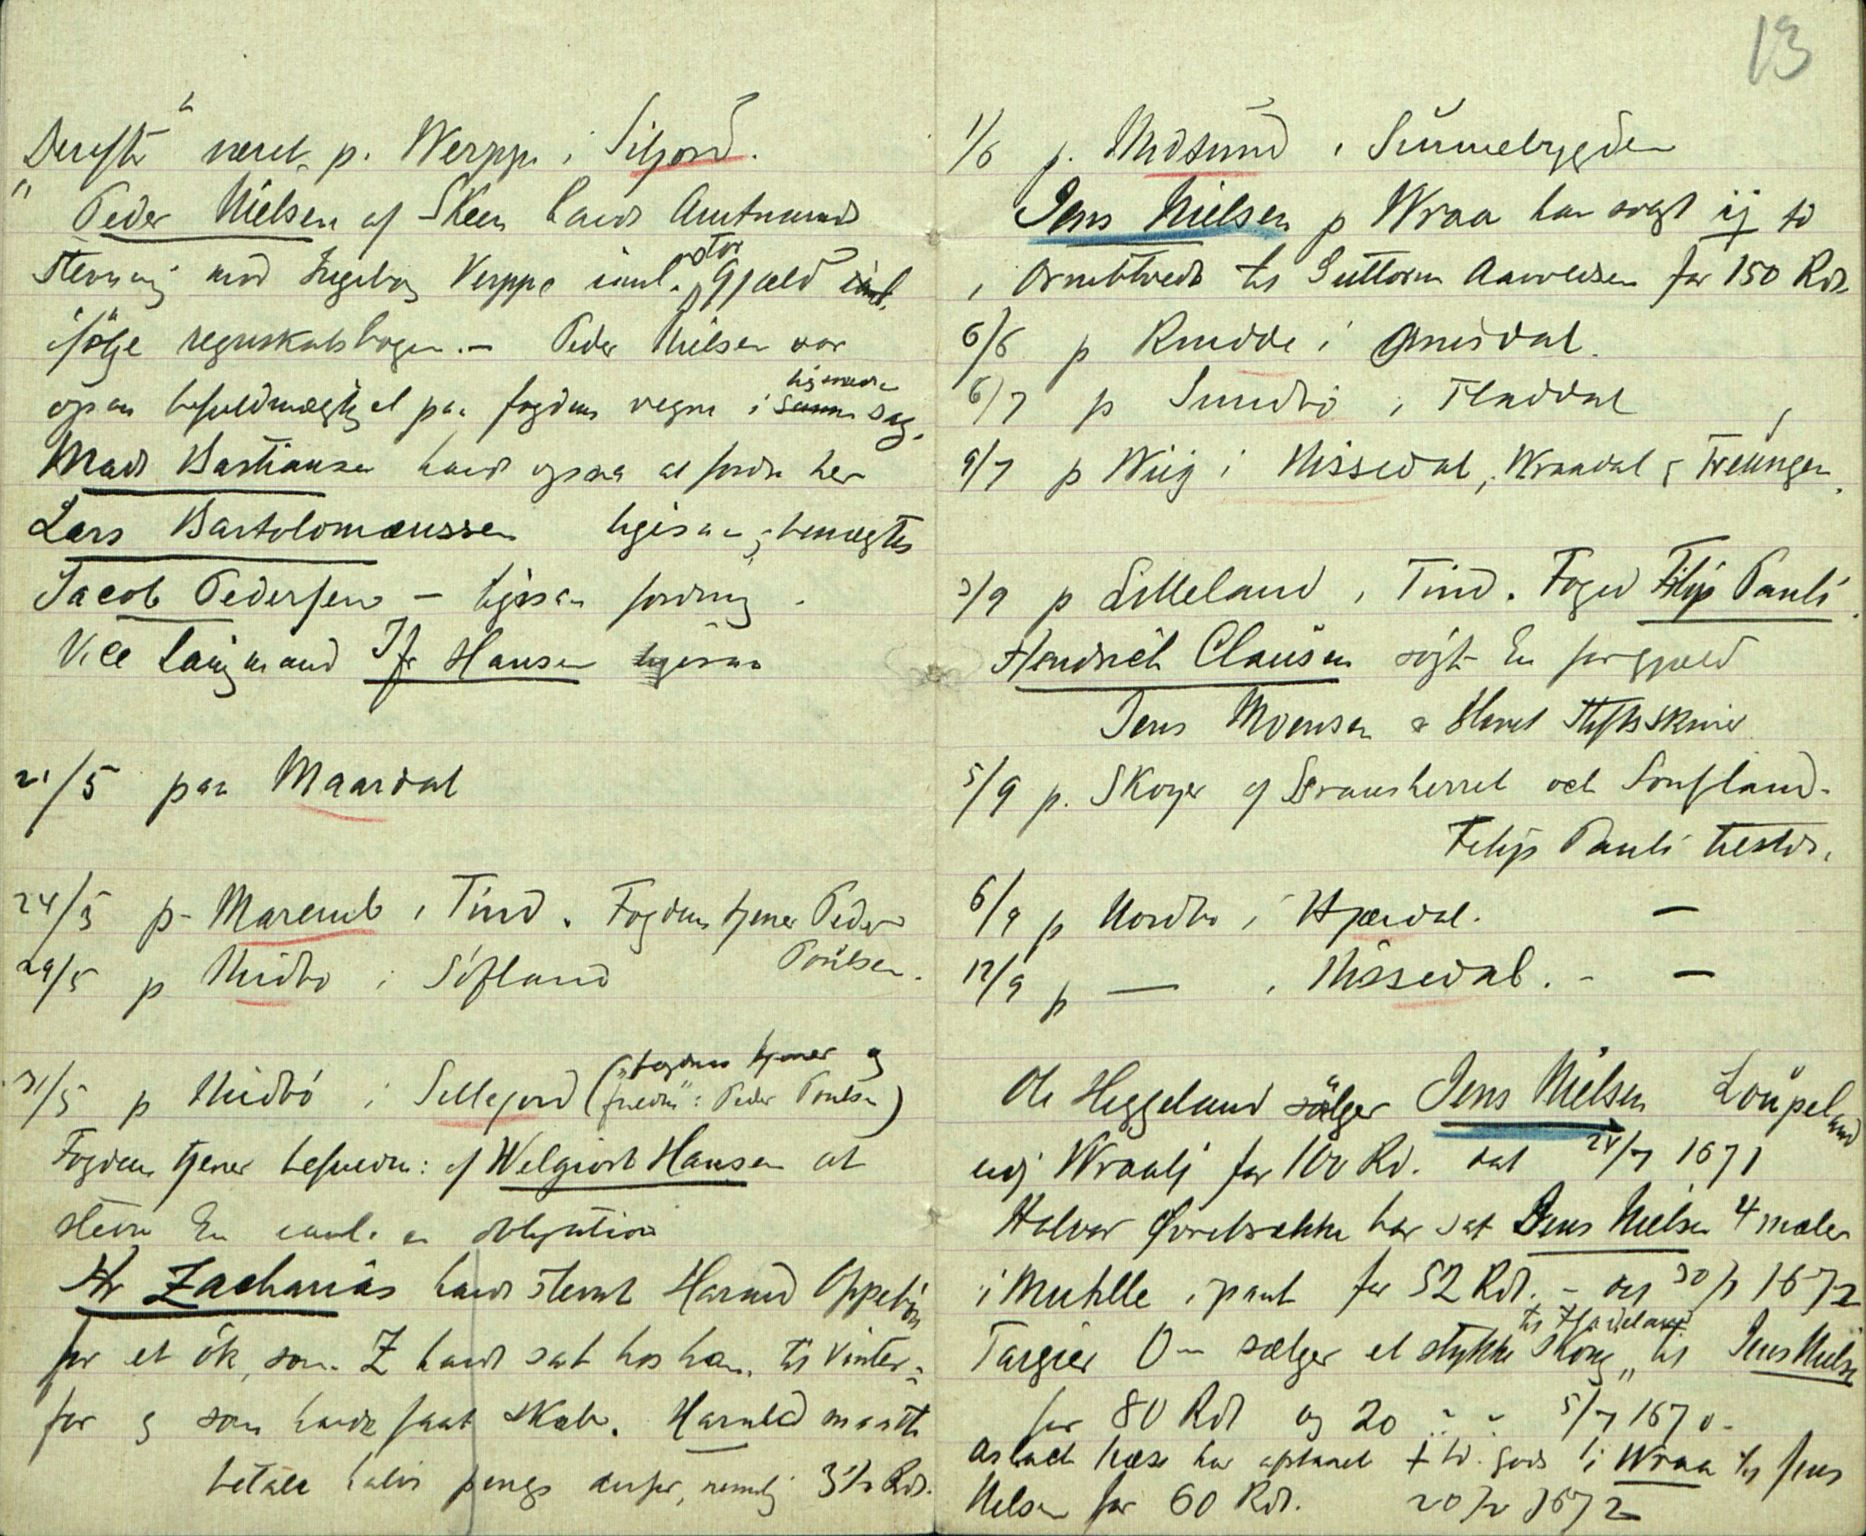 13
Derefter været p. Werpp i Siljord.
" Peder Nielsen af Skeen havde Amtmands
stevning mod Ingeborg Verppe gjæld
ifølge regnskabsbogen. – Peder Nielsen var
ogsaa befuldmægtiget paa fogdens vegne i samme sag.
Mads Bastiansen havde ogsaa at fordre her
Lars Bartolomæussen ligesaa
Jacob Pedersen – ligesaa fordring.
Vice laugmand Hansen ligesaa
21/5 paa Maardal
24/5 p. Maremb i Tind. Fogdens tjener Peder
Poulsen.
29/5 p Midbø i Søfland
31/5 p Midbø i Sillejord ("fogdens tjener og
fuldm": Peder Poulsen)
Fogdens tjener befuldm: af Welgiort Hansen at
stevne En obligation
Hr Zacharias havde stevnt Harald Oppebøen
for et øk, som Z havde sat hos ham til vinter-
for og som havde faat skab. Harald maatte
betale halve penge derfor, nemlig 3½ Rdl.
1/6 p. Midsund i Summebygden
Jens Nielsen p Wraa har solgt ij td
i Ormbtvedt til Guttorm Aavoldsen for 150 Rdl.
6/6 p Rindde i Amisdal.
6/7 p Sundbø i Fladdal
9/7 p Wiig i Nissedal, Wraadal og Treungen.
3/9 p Lilleland i Tind. Foged Filip Pauli.
Hendrich Clausen søgte En for gjæld
Jens Moensen Stiftsskriver
5/9 p. Skoger af Gransherret och Soufland.
Filip Pauli tilstede.
6/9 p Nordbø i Hjærdal. –
12/9 p — i Nissedal. - –
Ole Heggeland sælger Jens Nielsen Loupeland
udj Wraalj for 100 Rd. dat 24/7 1671
Halvor Øvrebække har sat Jens Nielsen 4 mæler
i Muhlle i pant for 52 Rdl. – 1672
Targier O– sælger et stykke skoug til Jens Nielsen
for 80 Rdl og 20 " " 5/7 1670-
Aslach Næse har gods i Wraa til Jens
Nelsen for 60 Rdl. 1672